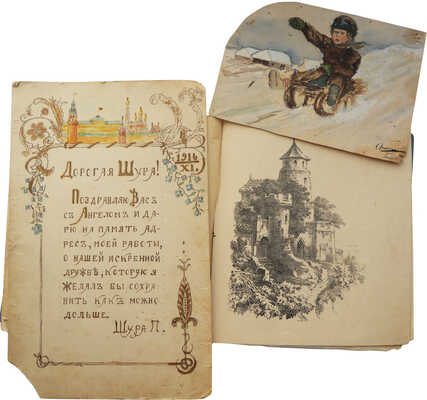 1914
XI.
Дорогая Шура!
Поздравляю Васъ
съ Ангеломъ и да-
рю на память Ад-
ресъ, моей работы,
о нашей искренной
дружбѣ, которую я
желалъ бы сохра-
нить какъ можно
дольше.
Шура П.